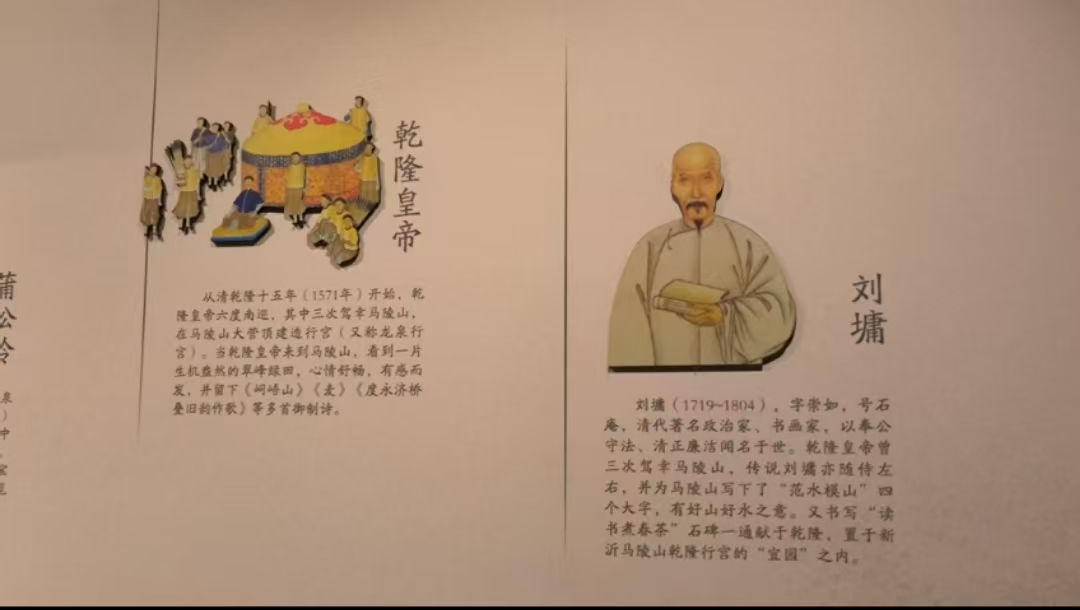 蒲公龄
乾隆皇帝
从清乾隆十五年（1571年）开始，乾
隆皇帝六度南巡，其中三次驾幸马陵山，
在马陵山大营顶建造行宫（又称龙泉行
宫）。当乾隆皇帝来到马陵山，看到一片
生机盎然的翠峰绿田，心情舒畅，有感而
发，并留下《峒峿山》《麦》《度永济桥
叠旧韵作歌》等多首御制诗。
刘墉
刘墉（1719~1804），字崇如，号石
庵，清代著名政治家、书画家，以奉公
守法、清正廉洁闻名于世。乾隆皇帝曾
三次驾幸马陵山，传说刘墉亦随侍左
右，并为马陵山写下了“范水模山”四
个大字，有好山好水之意。又书写“读
书煮春茶”石碑一通献于乾隆，置于新
沂马陵山乾隆行宫的“宜园”之内。